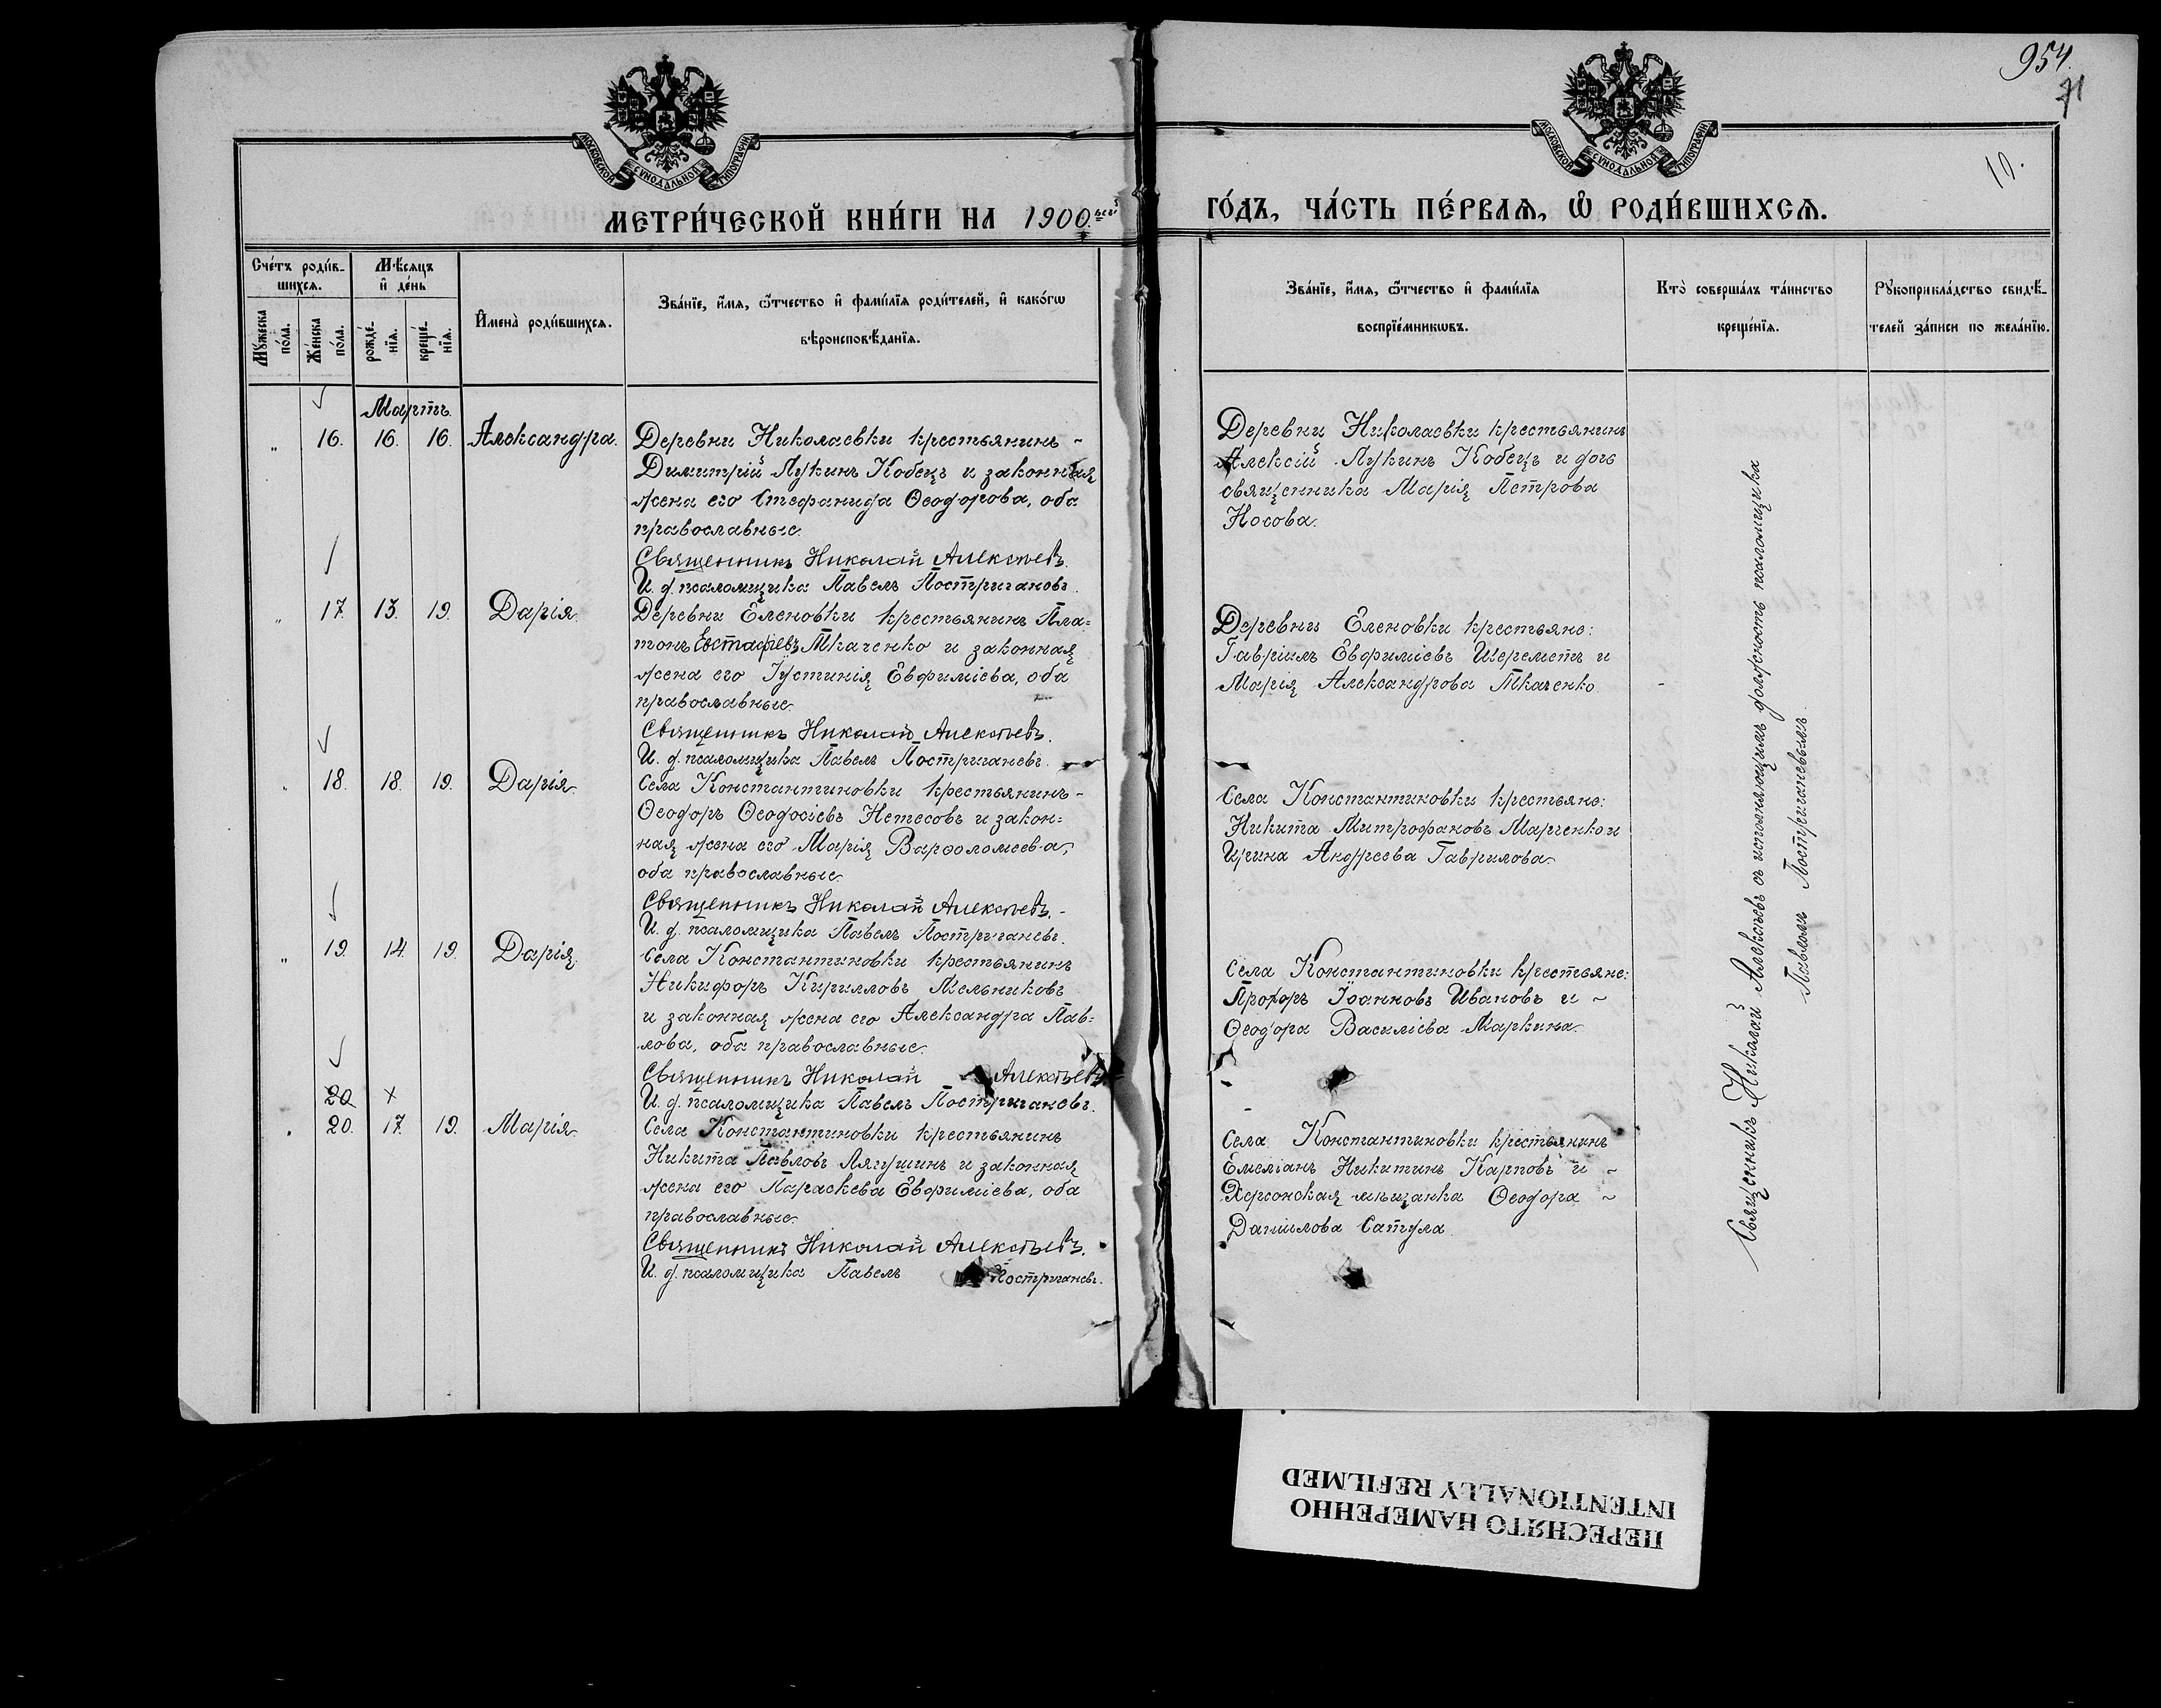 954.
71
10.
МОСКОВСКОЙ СѴНОДАЛЬНОЙ ТИПОГРАФІИ
МОСКОВСКОЙ СѴНОДАЛЬНОЙ ТИПОГРАФІИ
МЕТРИ́ЧЕСКОЙ КНИ́ГИ НА 1900.ый
ГО́ДЪ, ЧА́СТЬ ПЕ́РВАѦ, Ѽ РОДИ́ВШИХСѦ.
Сче́тъ роди́в-
шихсѧ.
Мѹ́жеска
по́ла.
Же́нска
по́ла.
Мѣ́сѧцъ
и҆ де́нь
рожде́-
нїѧ.
креще́-
нїѧ.
И҆мена̀ роди́вшихсѧ.
Зва́нїе, и҆́мѧ, ѻ҆́тчество и҆ фами́лїѧ роди́телей, и҆ како́гѡ
вѣроисповѣ́данїѧ.
Зва́нїе, и҆́мѧ, ѻ҆́тчество и҆ фами́лїѧ
воспрїе́мникѡвъ.
Кто̀ соверша́лъ та́инство
креще́нїѧ.
Рѹкоприкла́дство свидѣ́-
телей за́писи по жела́нїю.
Мартъ.
„ 16. 16. 16. Александра.
Деревни Николаевки крестьянинъ ~
Димитрій Лукинъ Кобецъ и законная
жена его Стефанида Ѳеодорова, оба
православные.
Священникъ Николай Алексѣевъ.
И. д. псаломщика Павелъ Постригановъ.
Деревни Николаевки крестьянинъ
Алексій Лукинъ Кобецъ и дочь
священника Марія Петрова
Носова.
„ 17. 13. 19. Дарія.
Деревни Еленовки крестьянинъ Пла=
тонъ Евстафіевъ Ткаченко и законная
жена его Іустинія Евфиміева, оба
православные.
Священникъ Николай Алексѣевъ.
И. д. псаломщика Павелъ Постриганевъ.
Деревни Еленовки крестьяне:
Гавріилъ Евфиміевъ Шереметъ и
Марія Александрова Ткаченко
„ 18. 18. 19. Дарія.
Села Константиновки крестьянинъ -
Ѳеодоръ Ѳеодосіевъ Нетесовъ и закон=
ная жена его Марія Варѳоломеева,
оба православные.
Священникъ Николай Алексѣевъ. -
И. д. псаломщика Павелъ Постриганевъ.
Села Константиновки крестьяне:
Никита Митрофановъ Марченко и
Ирина Андреева Гаврилова
„ 19. 14. 19. Дарія.
Села Константиновки крестьянинъ
Никифоръ Кирилловъ Мельниковъ
и законная жена его Александра Пав=
лова, оба православные.
Священникъ Николай Алексѣевъ
И. д. псаломщика Павелъ Постригановъ.
Села Константиновки крестьяне:
Прохоръ Іоанновъ Ивановъ и ~
Ѳеодора Василіева Маркина
20 х
„ 20. 17. 19. Марія.
Села Константиновки крестьянинъ
Никита Павловъ Ляпушинъ и законная
жена его Параскева Евфиміева, оба
православные.
Священникъ Николай Алексѣевъ.
И. д. псаломщика Павелъ Постриганевъ.
Села Константиновки крестьянинъ
Емеліанъ Никитинъ Карповъ и ~
Херсонская мѣщанка Ѳеодора ~
Даніилова Сатула
Священникъ Николай Алексѣевъ съ исполняющимъ должность псаломщика
Павломъ Постриганевымъ.
ПЕРЕСНЯТО НАМЕРЕННО
INTENTIONALLY REFILMED